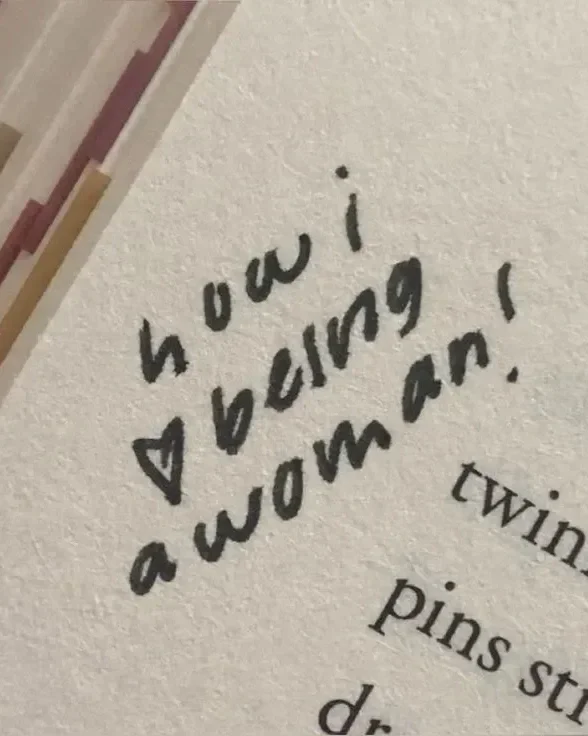 how i
♡ being
a woman!
twin
pins str
dr